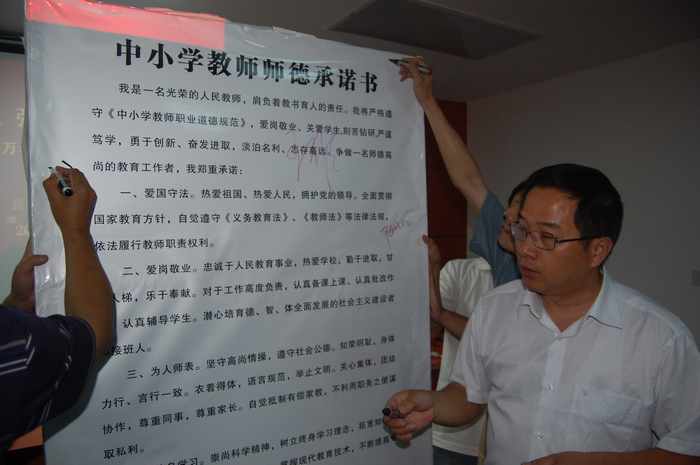 中小学教师师德承诺书
我是一名光荣的人民教师，肩负着教书育人的责任。我将严格遵
守《中小学教师职业道德规范》，爱岗敬业、关爱学生,刻苦钻研,严谨
笃学，勇于创新、奋发进取，淡泊名利、志存高远。争做一名师德高
尚的教育工作者，我郑重承诺：
一、爱国守法。热爱祖国、热爱人民，拥护党的领导。全面贯彻
国家教育方针，自觉遵守《义务教育法》、《教师法》等法律法规，
依法履行教师职责权利。
二、爱岗敬业。忠诚于人民教育事业，热爱学校，勤于进取，甘
人梯，乐于奉献。对于工作高度负责，认真备课上课、认真批改作
认真辅导学生。潜心培育德、智、体全面发展的社会主义建设者
接班人。
三、为人师表。坚守高尚情操，遵守社会公德。知荣明耻，身体
力行、言行一致。衣着得体，语言规范，举止文明。关心集体，团结
协作，尊重同事，尊重家长。自觉抵制有偿家教，不利用职务之便谋
取私利。
学习。崇尚科学精神，树立终身学习理念，拓宽知
掌握现代教育技术，不断提高